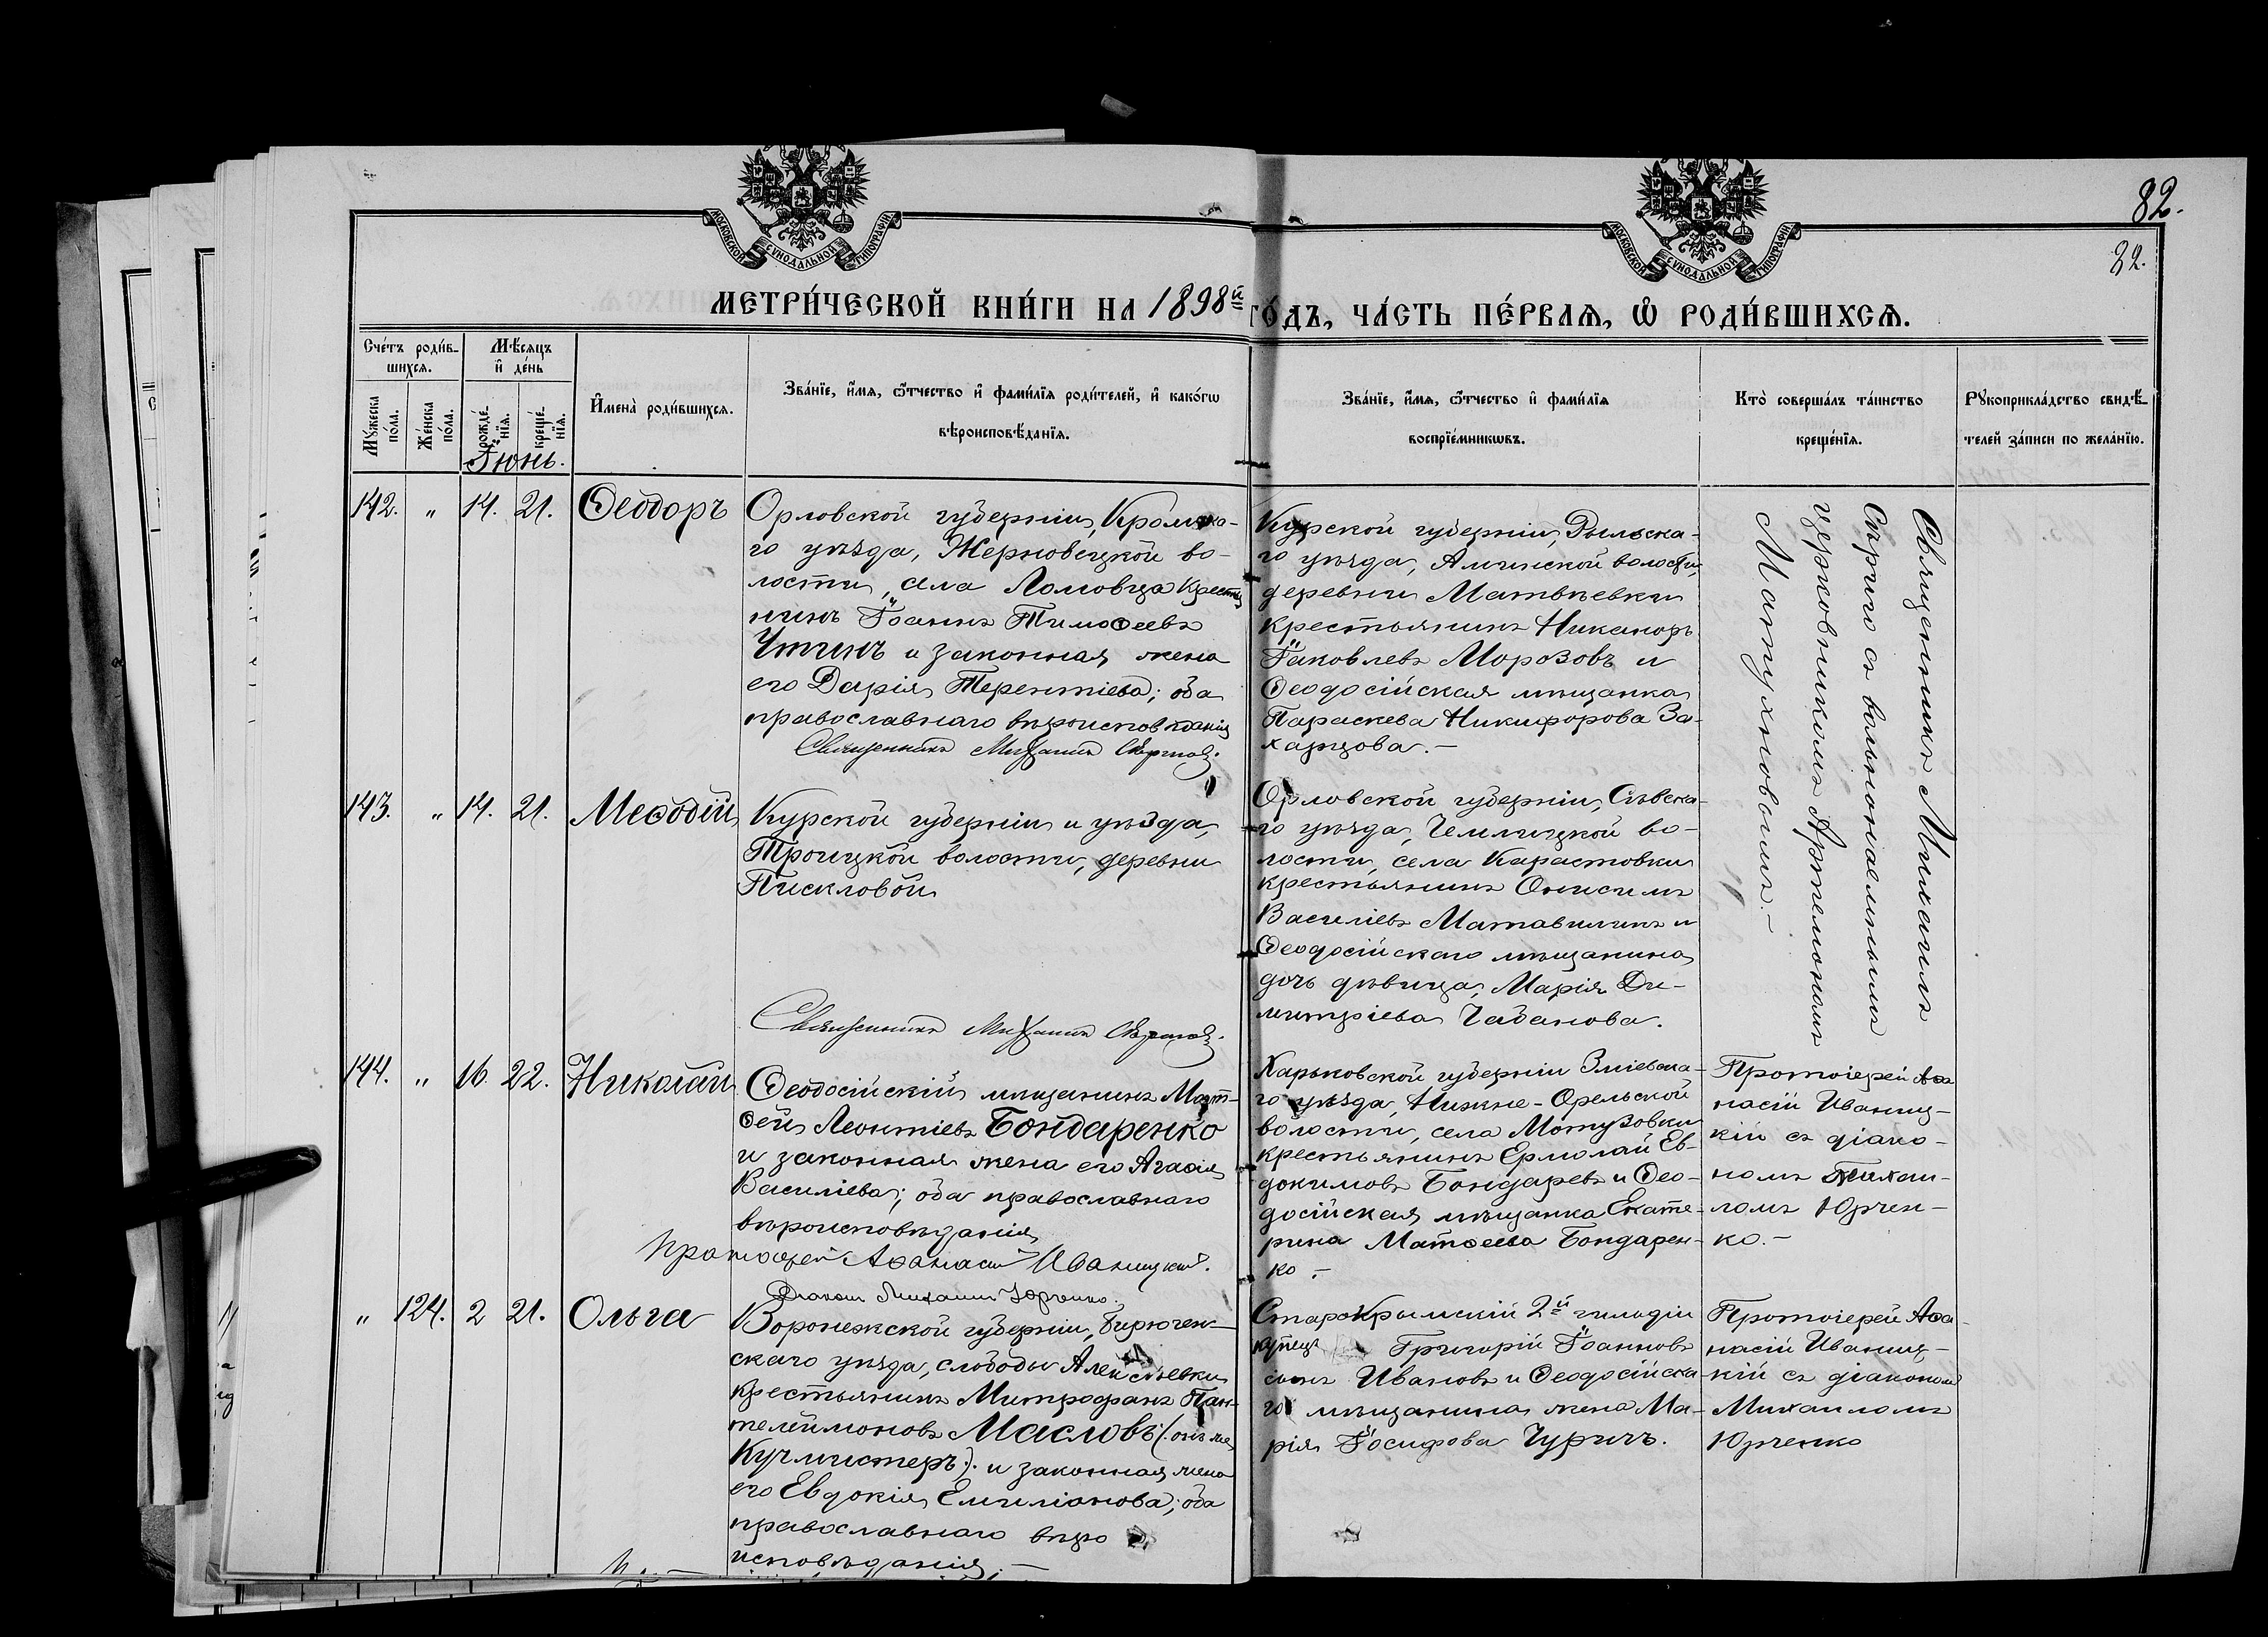 82.
82.
МОСКОВСКОЙ СѴНОДАЛЬНОЙ ТИПОГРАФІИ
МОСКОВСКОЙ СѴНОДАЛЬНОЙ ТИПОГРАФІИ
МЕТРИ́ЧЕСКОЙ КНИ́ГИ НА 1898й ГО́ДЪ, ЧА́СТЬ ПЕ́РВАЯ, Ѡ РОДИ́ВШИХСѦ.
Сче́тъ роди́в-
шихсѧ.
Мꙋ́жеска по́ла.
Же́нска по́ла.
Мѣ́сѧцъ и҆ де́нь
рожде́-нїѧ.
креще́-нїѧ.
Іюнь.
И҆мена̀ роди́вшихсѧ.
Зва́нїе, и҆́мѧ, ѻ҆́тчество и҆ фами́лїѧ роди́телей, и҆ како́гѡ
вѣроисповѣ́данїѧ.
Зва́нїе, и҆́мѧ, ѻ҆́тчество и҆ фами́лїѧ
воспрїе́мникѡвъ.
Кто̀ соверша́лъ та́инство
креще́нїѧ.
Рꙋкоприкла́дство свидѣ́-
телей за́писи по жела́нїю.
142. " 14. 21. Ѳеодоръ
Орловской губерніи, Кромска-
го уѣзда, Жерновецкой во-
лости, села Ломовца крестья
нинъ Іоаннъ Тимоѳеевъ
Утинъ и законная жена
его Дарія Терентіева; оба
православнаго вѣроисповѣданія
Священникъ Михаилъ Сѣриковъ.
Курской губерніи, Рыльска-
го уѣзда, Амонской волости,
деревни Матвѣевки
крестьянинъ Никаноръ
Іаковлевъ Морозовъ и
Ѳеодосійская мѣщанка
Параскева Никифорова За-
харцова.-
Священникъ Михаилъ
съ вольнонаемнымъ
церковникомъ Артемономъ
Матухновымъ.-
143. " 14. 21. Меѳодій
Курской губерніи и уѣзда,
Троицкой волости, деревни
Пискловой
Священникъ Михаилъ Сѣриковъ.
Орловской губерніи, Сѣвска-
го уѣзда, Чемлицкой во-
лости, села Карастовки
крестьянинъ Онисимъ
Василіевъ Матавилинъ и
Ѳеодосійскаго мѣщанина
дочь дѣвица, Марія Ди-
митріева Чабанова.
144. " 16. 22. Николай
Ѳеодосійскій мѣщанинъ Мат-
ѳей Леонтіевъ Бондаренко
и законная жена его Агаѳія
Василіева; оба православнаго
вѣроисповѣданія
Протоіерей Аѳанасій Иваницкій.
Діаконъ Михаилъ Юрченко.
Харьковской губерніи Зміевска-
го уѣзда, Нижне-Орельской
волости, села Мотузовки
крестьянинъ Ермолай Ев-
докимовъ Бондаревъ и Ѳео-
досійская мѣщанка Екате-
рина Матѳеева Бондарен-
ко.-
Протоіерей Аѳа
насій Иваниц-
кій съ діако-
номъ Михаи-
ломъ Юрчен-
ко.-
" 124. 2 21. Ольга
Воронежской губерніи, Бирючен-
скаго уѣзда, слободы Алексѣевки
крестьянинъ Митрофанъ Пан-
телеймоновъ Масловъ (онъ же
Кучмистеръ). и законная жена
его Евдокія Емиліанова; оба
православнаго вѣро
исповѣданія.-
Старокрымскій 2й гильдіи
купецъ Григорій Іоанновъ
сынъ Ивановъ и Ѳеодосійска-
го мѣщанина жена Ма-
рія Іосифова Чуричъ.
Протоіерей Аѳа-
насій Иваниц-
кій съ діакономъ
Михаиломъ
Юрченко